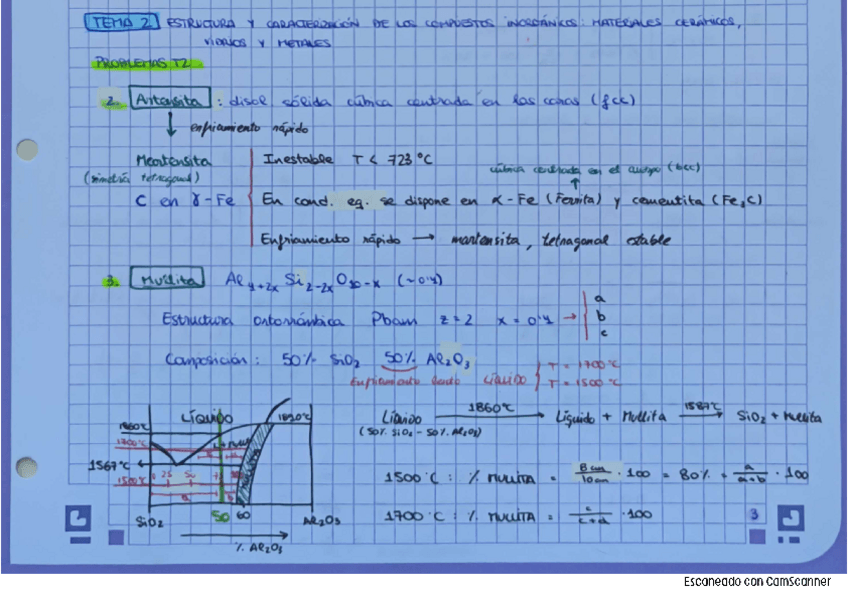 TEMA 2 ESTRUCTURA Y CARACTERIZACIÓN DE LOS COMPUESTOS INORGÁNICOS: MATERIALES CERÁMICOS,
VIDRIOS Y METALES
PROBLEMAS T2
2. Antensita : disol sólida cúbica centrada en las caras (fcc)
↓ enfriamiento rápido
Mantensita
(simetría tetragonal)
C en γ-Fe
Inestable T < 723 °C
cúbica centrada en el cuerpo (bcc)
En cond. eq. se dispone en α-Fe (Ferrita) y cementita (Fe3C)
Enfriamiento rápido → mantensita, tetragonal estable
3. Mullita Al4+2x Si2-2x O10-x (~0'4)
Estructura ortorrómbica Pbam z=2 x=0'4 →
a
b
c
Composición: 50% SiO2 50% Al2O3
Enfriamiento lento Líquido
T = 1700°C
T = 1500°C
Líquido 1860°C → Líquido + Mullita 1587°C → SiO2 + Mullita
(50% SiO2 - 50% Al2O3)
1500°C : % MULLITA = 8 cm / 10 cm · 100 = 80% = a / a+b · 100
1700°C : % MULLITA = c / c+d · 100
LÍQUIDO
1860°C
1700°C
1567°C
1500°C
SiO2 50 60 Al2O3
% Al2O3
3
Escaneado con CamScanner